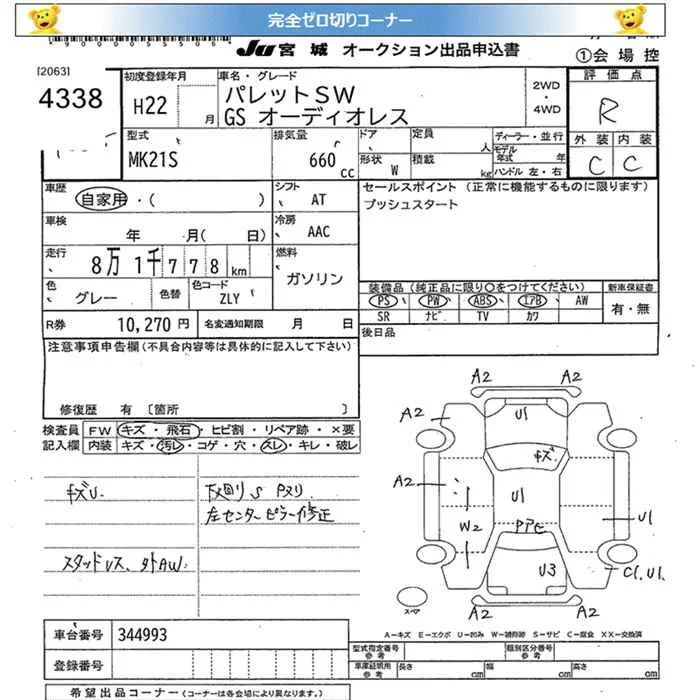 完全ゼロ切りコーナー
JU 宮城 オークション出品申込書
①会場控
[2063]
4338
初度登録年月
H22 月
車名・グレード
パレットSW
GS オーディオレス
2WD
・
4WD
評価点
R
型式
MK21S
排気量
660 cc
ドア
定員 人
形状 W
積載 kg
ディーラー・並行
モデル年式 年
ハンドル 左・右
外装 内装
C C
車歴
自家用・( )
シフト
AT
セールスポイント (正常に機能するものに限ります)
プッシュスタート
車検
年 月( 日)
冷房
AAC
走行
8万 1千 7 7 8 km
燃料
ガソリン
色
グレー
色替
色コード
ZLY
装備品 (純正品に限り〇をつけてください)
PS PW ABS エアB AW
SR ナビ TV カワ
新車保証書
有・無
R券 10,270 円
名変通知期限 月 日
後日品
注意事項申告欄 (不具合内容等は具体的に記入して下さい)
修復歴 有 [箇所 ]
検査員記入欄
FW キズ・飛石・ヒビ割・リペア跡・×要
内装 キズ・汚レ・コゲ・穴・スレ・キレ・破レ
キズU.
下廻り S Pヌリ
左センターピラー修正
スタッドレス、外AW.
A2 A2
A2 U1 A2
キズ
A2
U1
W2 PアE U1
U3 C1.U1.
スペア
A2 A2
A−キズ E−エクボ U−凹み W−補修跡 S−サビ C−腐食 XX−交換済
車台番号 344993
登録番号
型式指定番号 参考
類別区分番号 参考
車庫証明用 参考
長さ cm 幅 cm 高さ cm
希望出品コーナー (コーナーは各会場により異なります。)